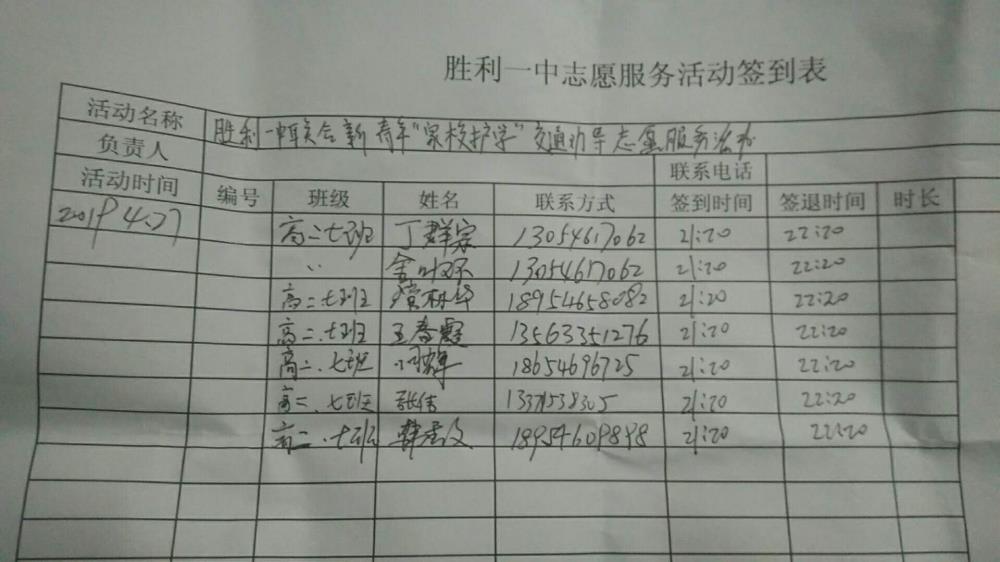 胜利一中志愿服务活动签到表
活动名称 胜利一中 会新青年“家校护学”交通劝导志愿服务活动
负责人 联系电话
活动时间 编号 班级 姓名 联系方式 签到时间 签退时间 时长
2019 4.27 高二七班 丁群宗 13054617062 21:20 22:20
〃 13054617062 21:20 22:20
高二.七班 18954658082 21:20 22:20
高二.七班 王春霞 13563351276 21:20 22:20
高二.七班 18654696725 21:20 22:20
高二.七班 张倩 21:20 22:20
高二.七班 18954609898 21:20 22:20